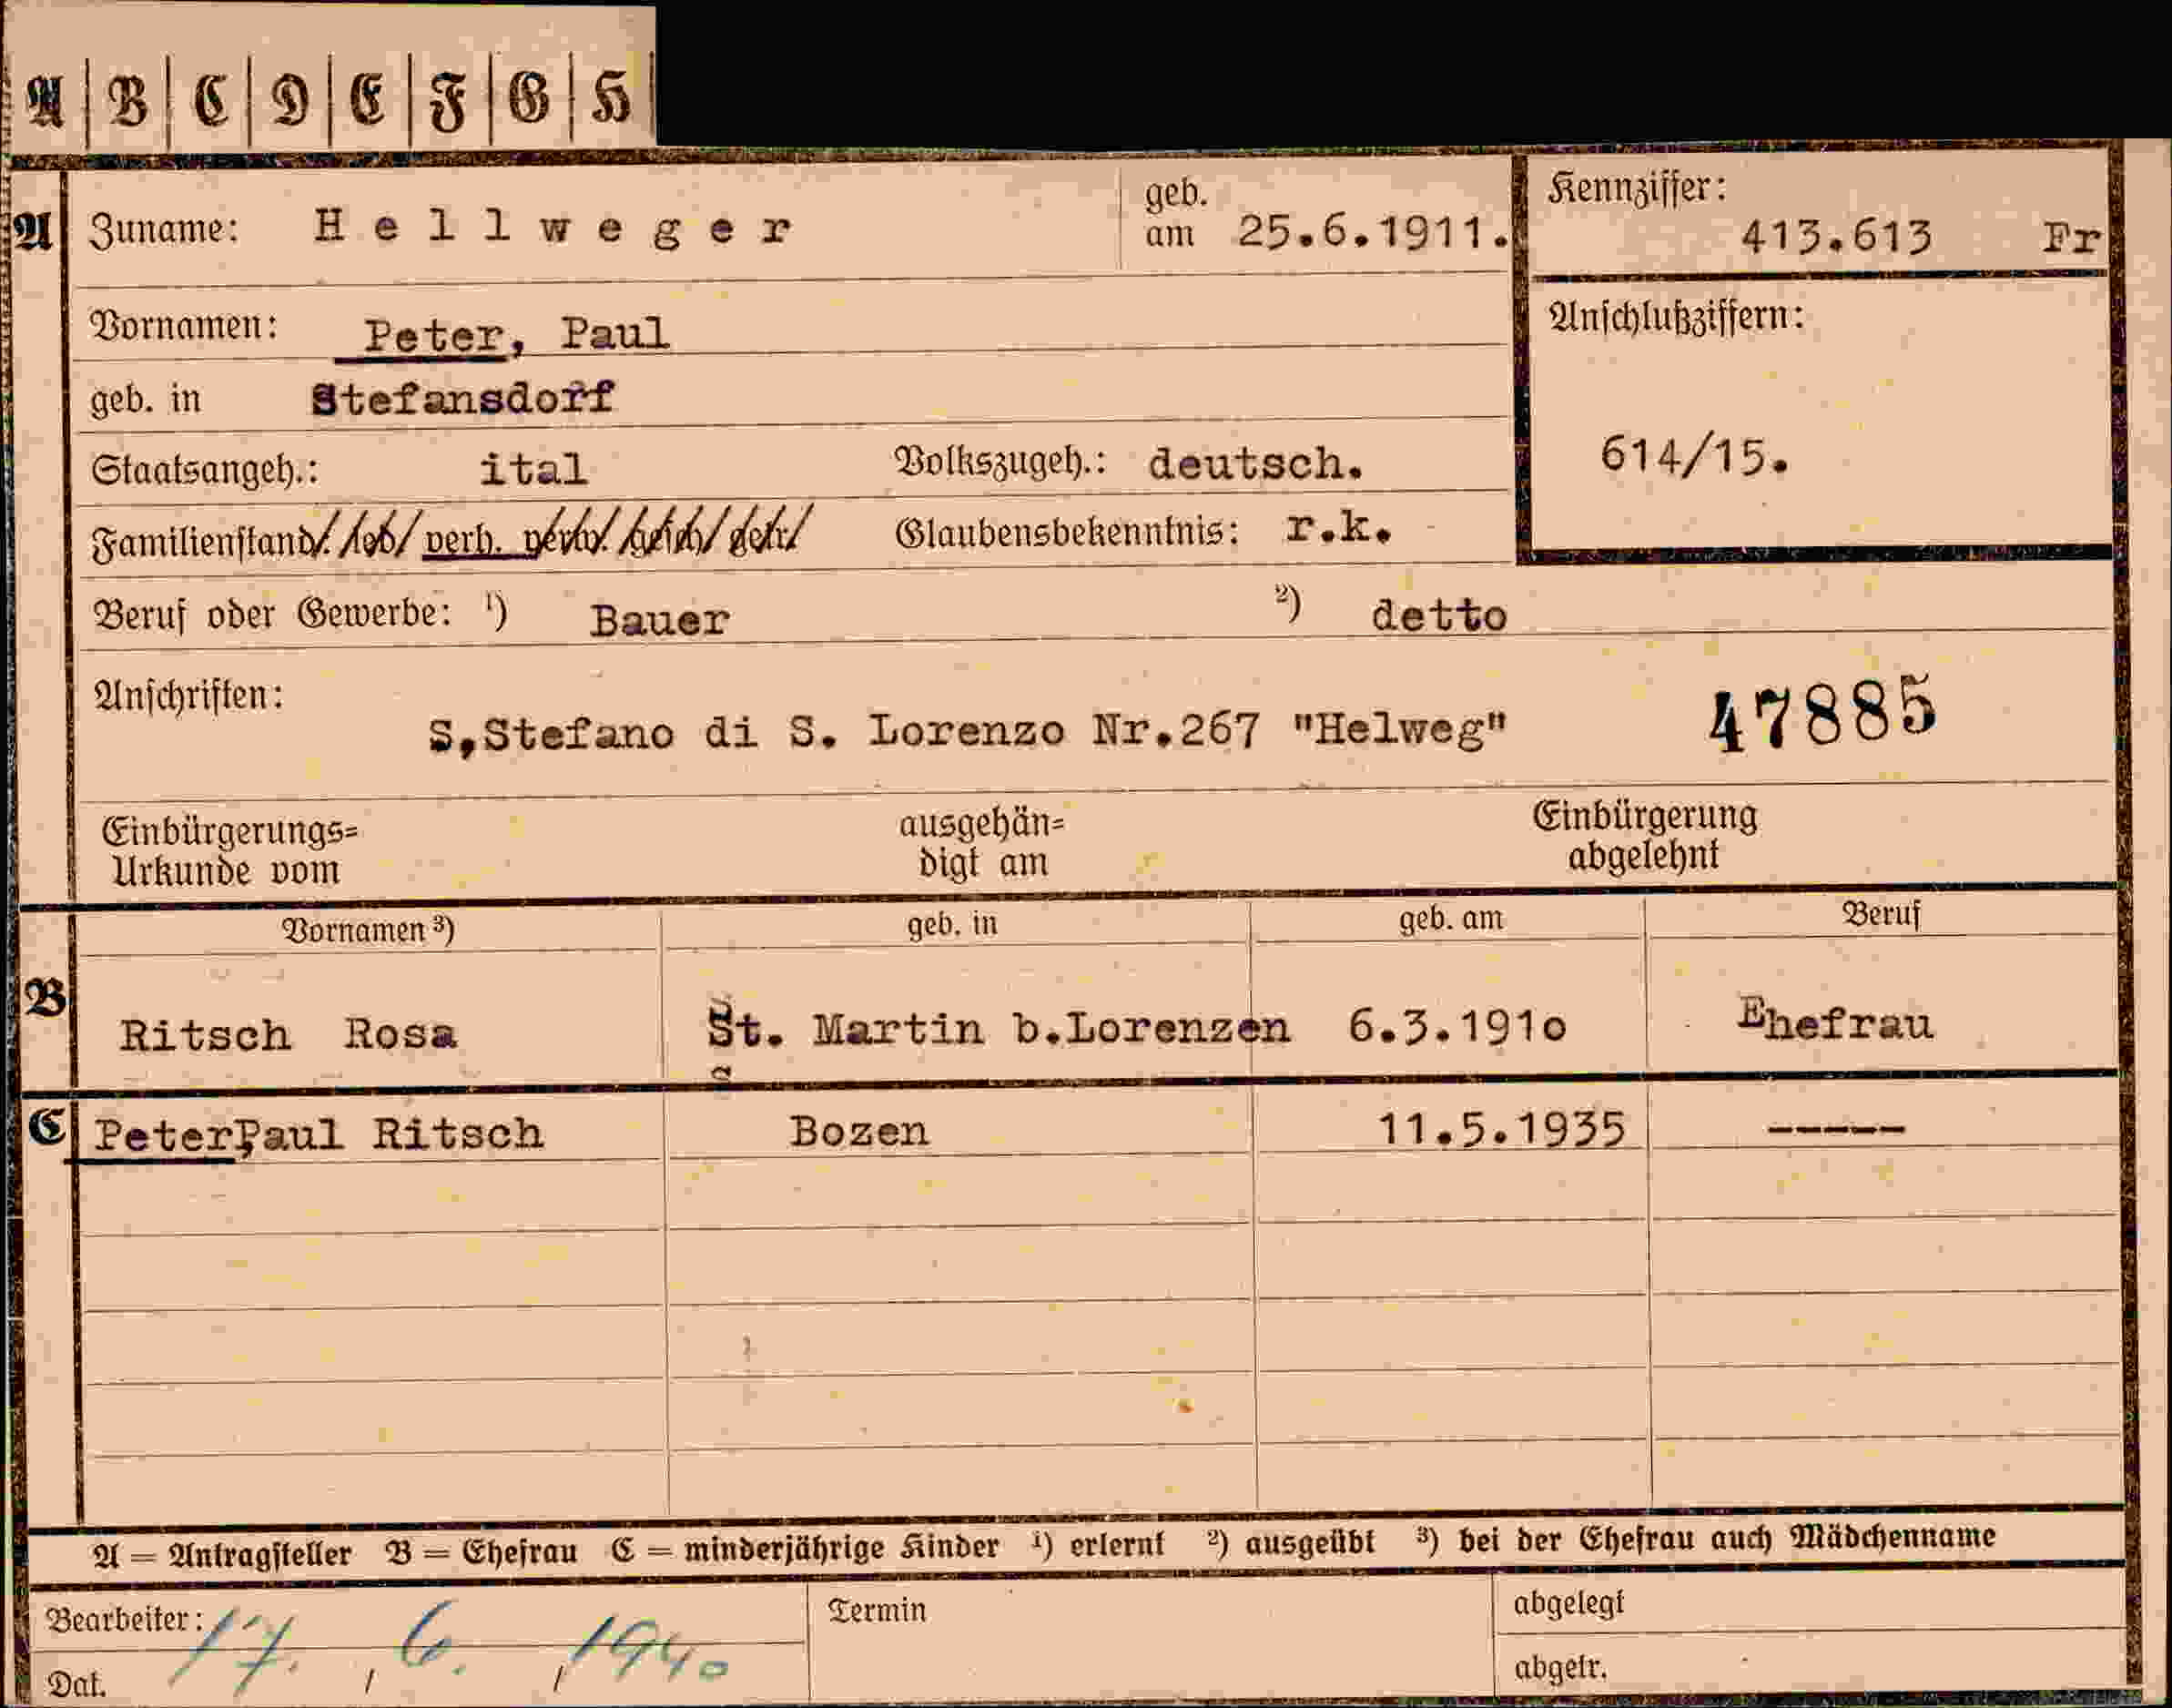 A B C D E F G H
A Zuname: Hellweger geb. am 25.6.1911. Kennziffer: 413.613 Fr
Vornamen: Peter, Paul Anschlußziffern:
geb. in Stefansdorf
Staatsangeh.: ital Volkszugeh.: deutsch. 614/15.
Familienstand: led. verh. verw. gesch. getr. Glaubensbekenntnis: r.k.
Beruf oder Gewerbe: ¹) Bauer ²) detto
Anschriften: S,Stefano di S. Lorenzo Nr.267 "Helweg" 47885
Einbürgerungs= ausgehän= Einbürgerung
Urkunde vom digt am abgelehnt
Vornamen ³) geb. in geb. am Beruf
B Ritsch Rosa St. Martin b.Lorenzen 6.3.1910 Ehefrau
C Peter,Paul Ritsch Bozen 11.5.1935 -----
A = Antragsteller B = Ehefrau C = minderjährige Kinder ¹) erlernt ²) ausgeübt ³) bei der Ehefrau auch Mädchenname
Bearbeiter: Termin abgelegt
Dat. 17. 6. 1940 abgetr.